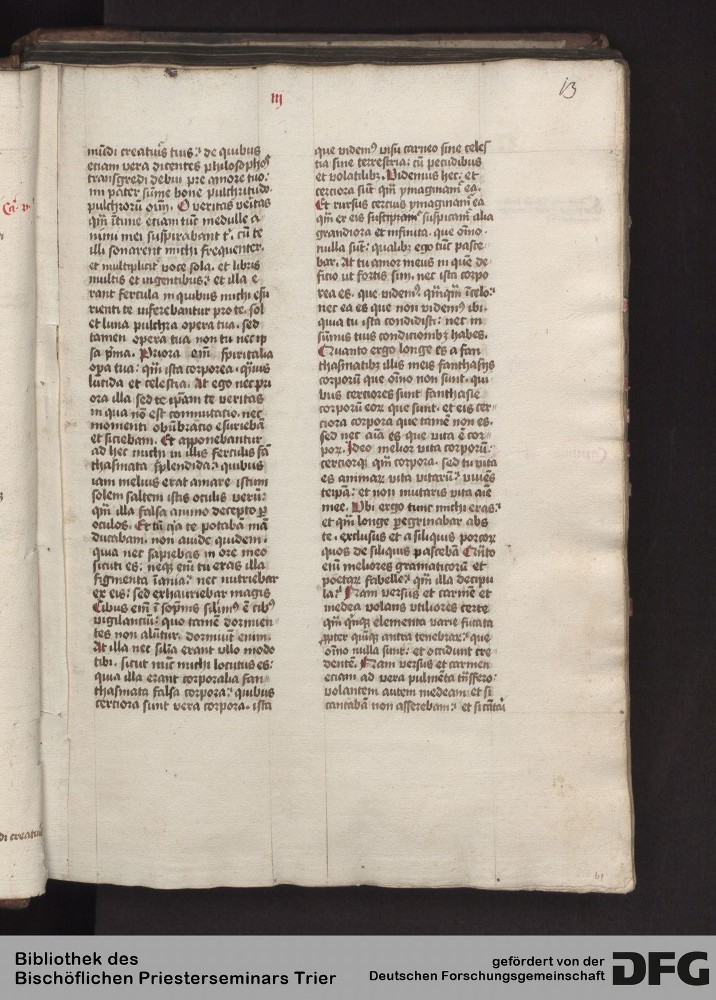 iij
13
Ca. vi
mūdi creatūs tuis: de quibus
etiam vera dicentes philosophos
transgredi debui pre amore tuo:
mi pater sūme bone pulchritudo
pulchrorū oīm. O veritas veritas
qm̄ ītime etiam tūc medulle a-
nimi mei suspirabant t͛. cū te
illi sonarent michi frequenter.
et multiplicit͛ voce sola. et libris
multis et ingentibus: et illa e-
rant fercula in quibus michi esu-
rienti te inferebantur pro te. sol
et luna pulchra opera tua. sed
tamen opera tua non tu nec ip-
sa p̄ma. Priora em̄ spiritalia
oꝑa tua: qm̄ ista corporea. quīuis
lucida et celestia. At ego nec pri-
ora illa sed te ip̄am te veritas
in qua nō est conmutatio. nec
momenti obūbratio esurieba
et sitiebam. Et apponebantur
ad hec michi in illis ferculis fā-
thasmata splendida: quibus
iam melius erat amare istum
solem saltem istis oculis verū:
qm̄ illa falsa animo decepto ꝑ
oculos. Et tn̄ qa te putaba mā-
ducabam. non auide quidem.
quia nec sapiebas in ore meo
sicuti es: neqꝫ em̄ tu eras illa
figmenta īania: nec nutriebar
ex eis: sed exhauriebar magis
Cibus em̄ ī sopnis silim9 ē cib9
vigilantiū: quo tamē dormien-
tes non alūtur. dormiūt enim.
At illa nec silia erant vllo modo
tibi. sicut nūc michi locutus es:
quia illa erant corporalia fan-
thasmata falsa corpora: quibus
certiora sunt vera corpora. ista
que videm9 visu carneo siue celes-
tia siue terrestria: cū pecudibus
et volatilibꝫ. Videmus hec: et
certiora sūt qm̄ ymaginam͛ ea.
Et rursus certius ymaginam͛ ea
qm̄ ex eis suspicam͛ alia
grandiora et infinita. que oīno
nulla sūt: qualibꝫ ego tūc pasce-
bar. At tu amor meus in quē de-
ficio ut fortis sim. nec ista corpo-
rea es. que videm9 qm̄qm̄ ī celo:
nec ea es que non videm9 ibi.
quia tu ista condidisti: nec in
sūmis tuis condicionibꝫ habes.
Quanto ergo longe es a fan-
thasmatibꝫ illis meis fanthasijs
corporū que oīno non sunt. qui-
bus certiores sunt fanthasie
corporū eoꝝ que sunt. et eis cer-
ciora corpora que tamē non es.
sed nec aīa es que vita ē cor-
poꝝ. Ideo melior vita corporū
certiorqꝫ qm̄ corpora. sed tu vita
es animaꝝ vita vitarū: viuēs
teip̄a: et non mutaris vita aīe
mee. Vbi ergo tunc michi eras:
et qm̄ longe ꝑegrinabar abs
te. exclusus et a siliquis porcoꝝ
quos de siliquis pascebā Quāto
enī meliores gramaticorū et
poetaꝝ fabelle: qm̄ illa decipu-
la: Nam versus et carmē et
medea volans vtiliores certe
qm̄ qn̄qꝫ elementa varie fucata
ꝓpter quīqꝫ antra tenebraꝝ: que
oīno nulla sunt: et occidunt cre-
dentē. Nam versus et carmen
etiam ad vera pulmēta tn̄sfero:
volantem autem medeam: et si
cantabā non asserebam: et si cātai
di creatuis
b1
Bibliothek des
Bischöflichen Priesterseminars Trier
gefördert von der
Deutschen Forschungsgemeinschaft
DFG